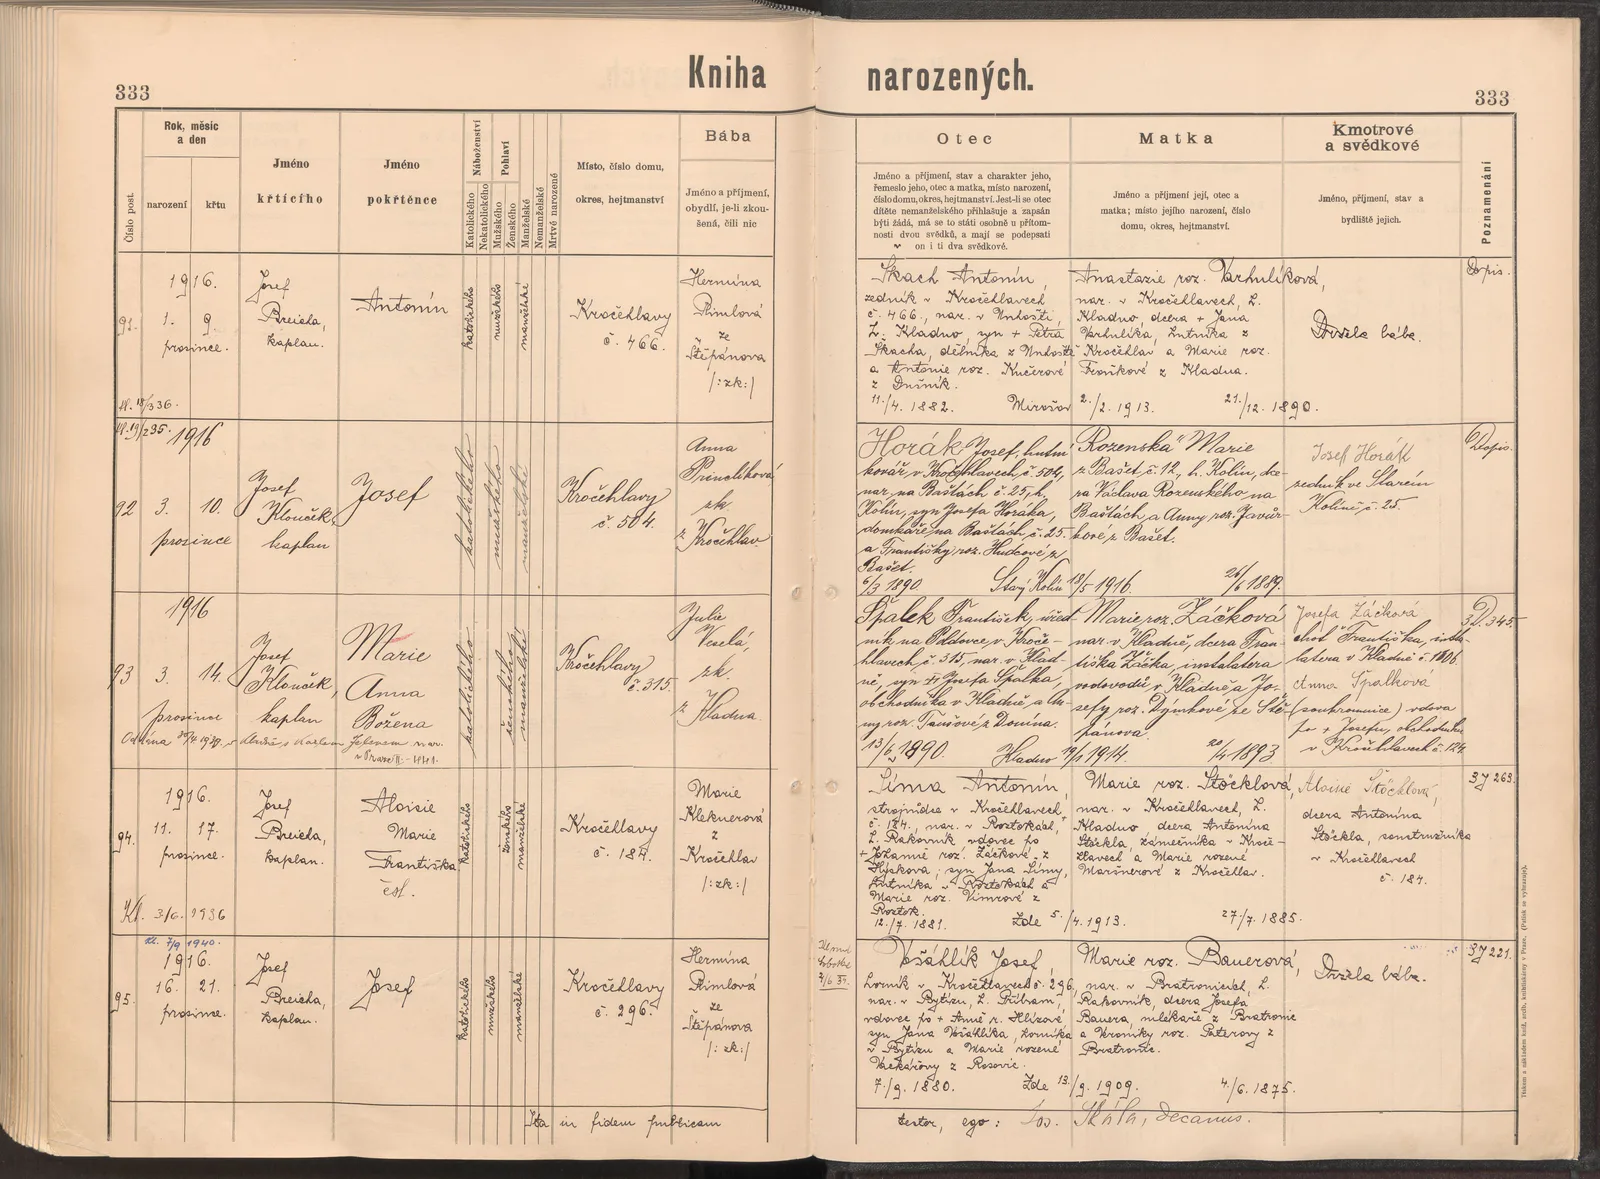 Kniha narozených.
333
333
Číslo post.
Rok, měsíc
a den
narození
křtu
Jméno
křtícího
Jméno
pokřtěnce
Náboženství
Katolického
Nekatolického
Pohlaví
Mužského
Ženského
Manželské
Nemanželské
Mrtvě narozené
Místo, číslo domu,
okres, hejtmanství
Bába
Jméno a příjmení,
obydlí, je-li zkou-
šená, čili nic
Otec
Jméno a příjmení, stav a charakter jeho,
řemeslo jeho, otec a matka, místo narození,
číslo domu, okres, hejtmanství. Jest-li se otec
dítěte nemanželského přihlašuje a zapsán
býti žádá, má se to státi osobně u přítom-
nosti dvou svědků, a mají se podepsati
on i ti dva svědkové.
Matka
Jméno a příjmení její, otec a
matka; místo jejího narození, číslo
domu, okres, hejtmanství.
Kmotrové
a svědkové
Jméno, příjmení, stav a
bydliště jejich.
Poznamenání
91.
1916.
1. 9.
prosince.
Josef
Breicha,
kaplan.
Antonín
katolického
mužského
manželské
Kročehlavy
č. 466.
Hermína
Pimlová
ze
Štěpánova
/:zk:/
Škach Antonín,
zedník v Kročehlavech
č. 466., nar. v Unhošti
L. Kladno, syn + Petra
Škacha, dělníka z Unhoště
a Antonie roz. Kučerové
z Dušník.
11./4. 1882.
Mirošov 2./2. 1913.
Anastazie roz. Varhulíková,
nar. v Kročehlavech, L.
Kladno, dcera + Jana
Varhulíka, hutníka z
Kročehlav a Marie roz.
z Kladna.
21./12. 1890.
Držela bába.
Dopis.
92
1916
3. 10.
prosince
Josef
Klouček,
kaplan
Josef
katolického
mužského
manželské
Kročehlavy
č. 504.
Anna
zk.
z Kročehlav
Horák Josef, hutní
kovář, v Kročehlavech, č. 504,
nar. na Baštách č. 25, h.
Kolín, syn Josefa Horáka,
domkaře na Baštách, č. 25.
a Františky roz. Hudcové z
Bašet.
6/3 1890
Starý Kolín 13/5 1916.
Rozenská Marie
z Bašet, č. 12, h. Kolín, dce-
ra Václava Rozenského na
Baštách, a Anny roz. Javůr-
kové z Bašet.
26/6 1889.
Josef Horák
zedník ve Starém
Kolíně č. 25.
Dopis.
93
1916
3. 14.
prosince
Josef
Klouček,
kaplan
Marie
Anna
Božena
katolického
ženského
manželské
Kročehlavy
č. 315.
Julie
Veselá,
zk.
z Kladna
Špalek František, úřed-
ník na Poldovce, v Kroče-
hlavech, č. 315, nar. v Klad-
ně, syn + Josefa Špalka,
obchodníka v Kladně a An-
ny roz. Taušové z Domina.
13/6 1890
Kladno 19/1 1914.
Marie roz. Žáčková
nar. v Kladně, dcera Fran-
tiška Žáčka, instalatera
vodovodů, v Kladně, a Jo-
sefy roz. Dýmkové, ze Ště-
pánova.
20/4 1893
Josefa Žáčková
choť Františka, insta-
latera v Kladně č. 1806.
Anna Špalková
(soukromnice) vdova
po + Josefu, obchodníku
v Kročehlavech č. 124.
3 D. 345.
94.
1916.
11. 17.
prosince.
Kl. 3/6. 1936
Josef
Breicha,
kaplan.
Aloisie
Marie
Františka
čsl.
katolického
ženského
manželské
Kročehlavy
č. 184.
Marie
Kleknerová
z
Kročehlav
/:zk:/
Šíma Antonín,
strojnůdce v Kročehlavech,
č. 184., nar. v Roztokách,
L. Rakovník, vdovec po
+ Johanně roz. Žáčkové z
Hýskova; syn Jana Šímy,
hutníka v Roztokách a
Marie roz. Vimrové z
Roztok.
12./7. 1881.
Zde 5./4. 1913.
Marie roz. Stöcklová,
nar. v Kročehlavech, L.
Kladno dcera Antonína
Stöckla, zámečníka v Kroče-
hlavech a Marie rozené
Maršnerové z Kročehlav.
27./7. 1885.
Aloisie Stöcklová,
dcera Antonína
Stöckla,
v Kročehlavech
č. 184.
3 J 263.
95.
kl. 7/9 1940.
1916.
16. 21.
prosince.
Josef
Breicha,
kaplan.
Josef
katolického
mužského
manželské
Kročehlavy
č. 296.
Hermína
Pimlová
ze
Štěpánova
/:zk:/
Vošáhlík Josef,
horník v Kročehlavech č. 296,
nar. v Bytízu, L. Příbram,
vdovec po + Anně r. Hlízové
syn Jana Vošáhlíka, horníka
v Bytízu a Marie rozené
Vackářovy z Kosovic.
7./9. 1880.
Zde 13./9. 1909.
Marie roz. Bauerová,
nar. v Bratronicích, L.
Rakovník, dcera Josefa
Bauera, mlékaře z Bratronic
a Vroniky roz. Paterovy z
Bratronic.
4./6. 1875.
Držela bába.
3 J 221.
Ita in fidem publicam
testor, ego: Jos. Skála, decanus.